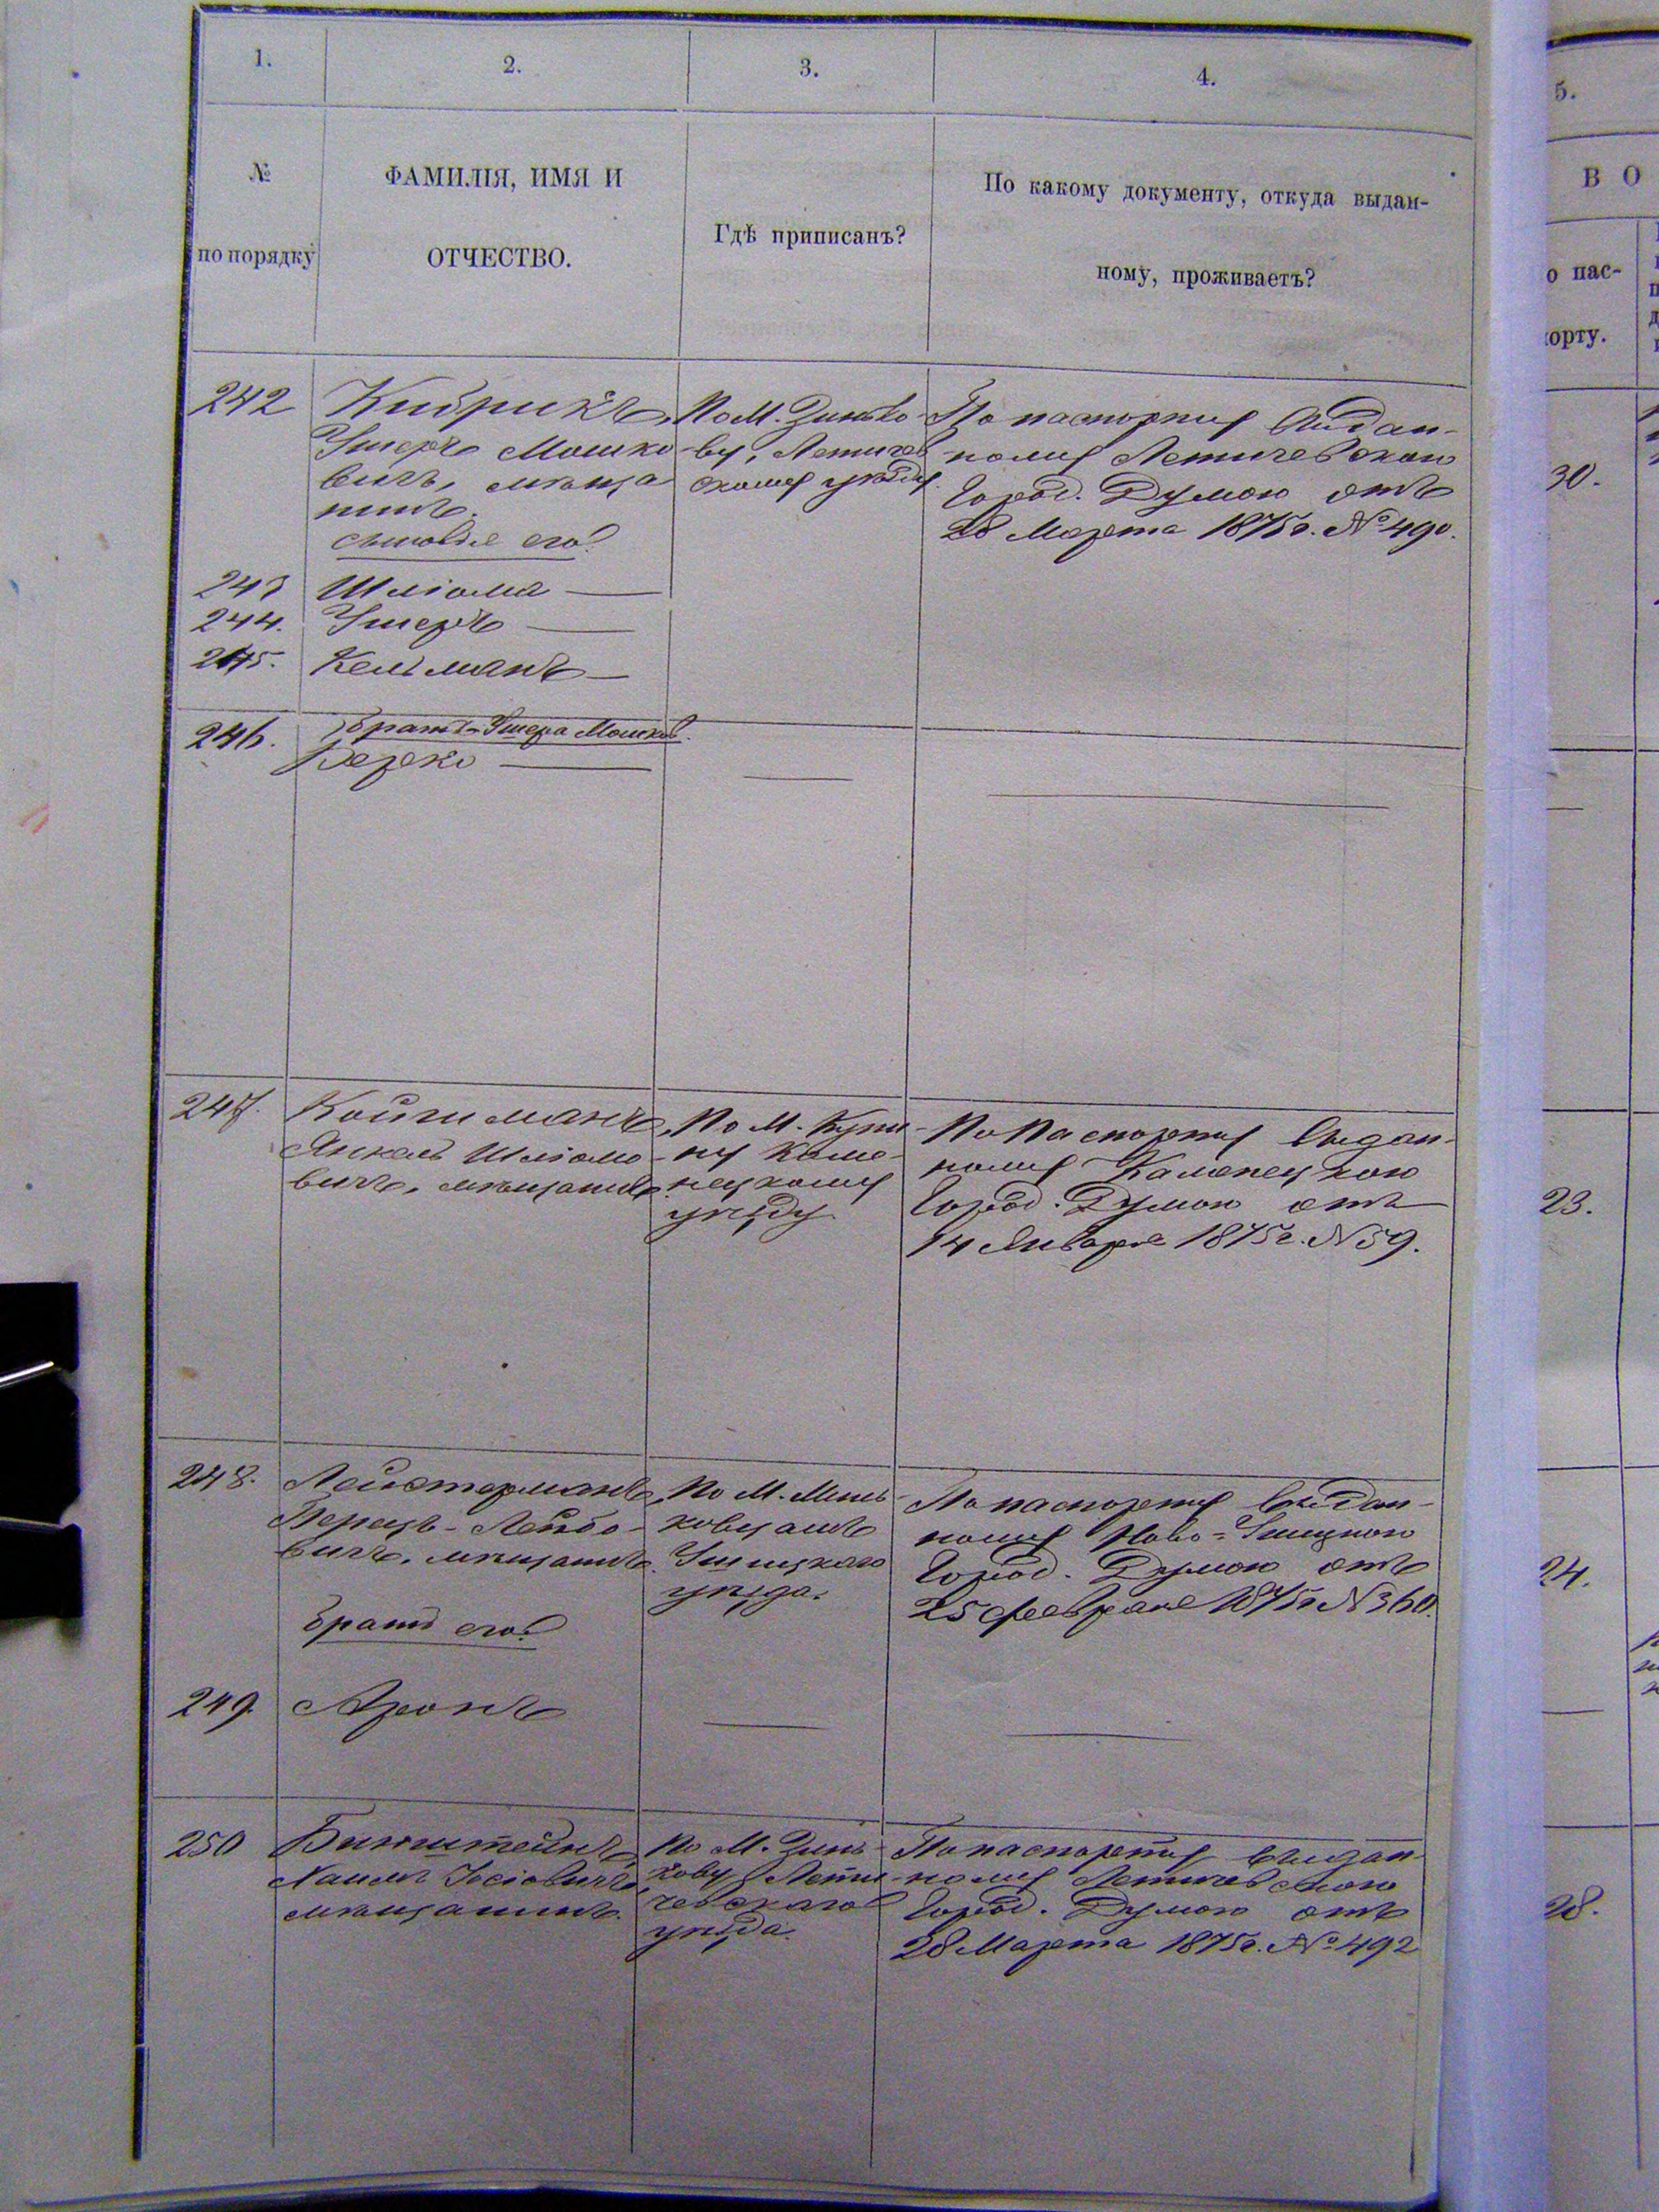 1.
2.
3.
4.
5.
№
по порядку
ФАМИЛІЯ, ИМЯ И
ОТЧЕСТВО.
Гдѣ приписанъ?
По какому документу, откуда выдан-
ному, проживаетъ?
ВО
о пас-
орту.
242
Кибрикъ,
Ушеръ Мошко
вичъ, мѣща
нинъ.
сыновья его:
По М. Зинько
ву, Летичев
скому уѣзду.
По паспорту выдан-
ному Летичевскою
Город. Думою отъ
28 Марта 1875г. № 490.
30.
243 Шліома
244. Ушеръ
245. Кельманъ
246. братъ Ушера Мошков.
Берко
247. Койтманъ,
Янкель Шліомо-
вичъ, мѣщанинъ
По М. Купи-
ну Каме-
нецкому
уѣзду
По паспорту выдан-
ному Каменецкою
Город. Думою отъ
14 Января 1875г. № 59.
23.
248. Лейстерманъ,
Перецъ-Лейбо-
вичъ, мѣщанинъ.
братъ его:
По М. Минь-
ковцамъ
Ушицкаго
уѣзда.
По паспорту выдан-
ному Ново-Ушицкою
Город. Думою отъ
25 февраля 1875г. № 360.
24.
249. Аронъ
250 Бинштейнъ,
Хаимъ Іосіовичъ,
мѣщанинъ.
По М. Зинь-
кову Лети-
чевскаго
уѣзда.
По паспорту выдан-
ному Летичевскою
Город. Думою отъ
28 Марта 1875г. № 492
28.